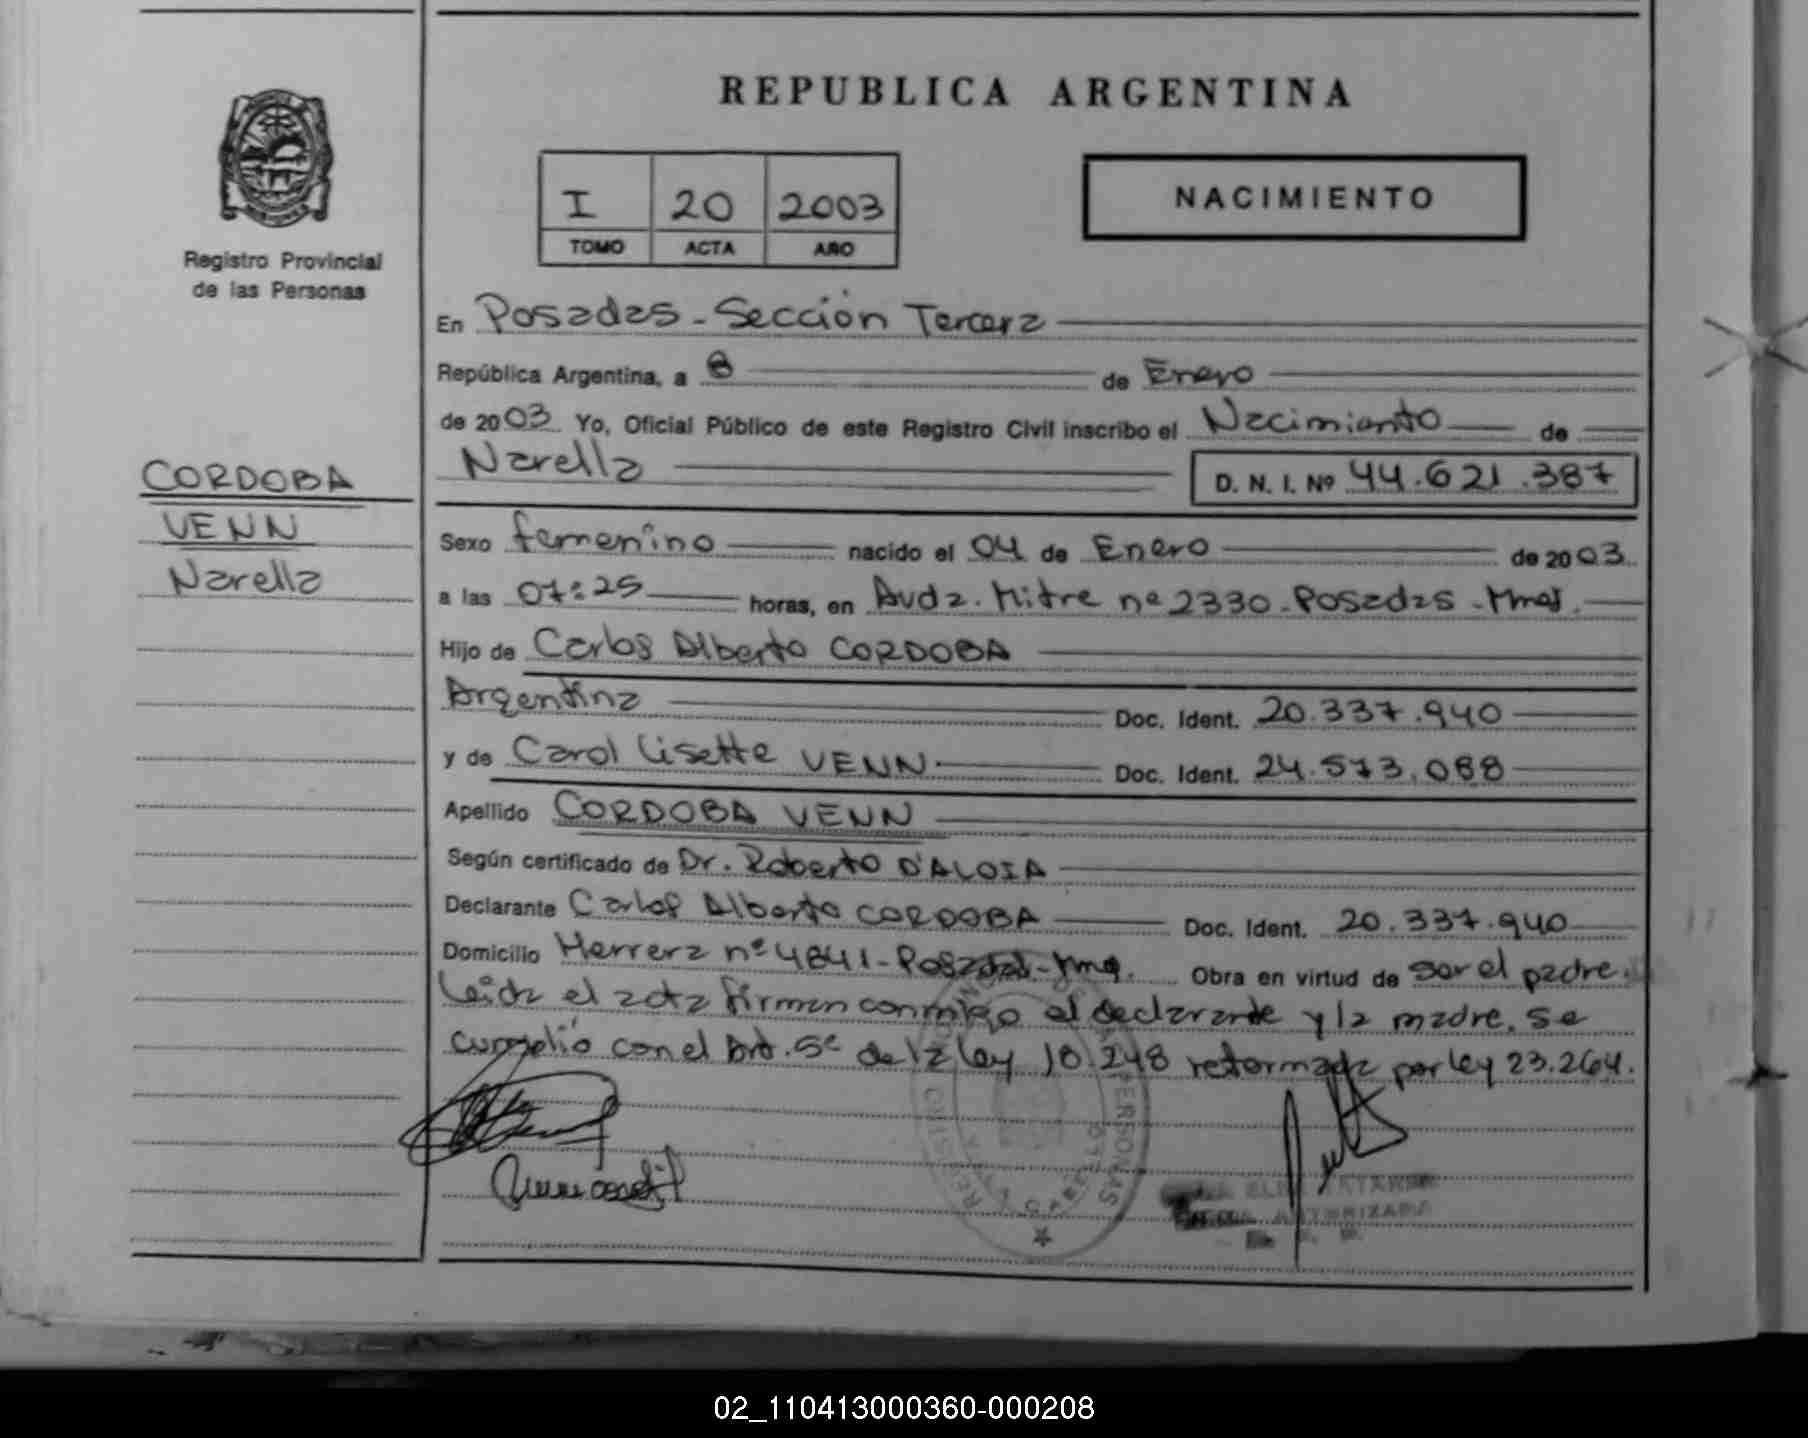 REPUBLICA ARGENTINA
I 20 2003
TOMO ACTA AÑO
NACIMIENTO
Registro Provincial
de las Personas
CORDOBA
VENN
Narella
En Posadas - Sección Tercera
República Argentina, a 8 de Enero
de 2003 Yo, Oficial Público de este Registro Civil inscribo el Nacimiento de
Narella D. N. I. Nº 44.621.387
Sexo femenino nacido el 04 de Enero de 2003
a las 07:25 horas, en Avda. Mitre nº 2330 - Posadas - Mnes.
Hijo de Carlos Alberto CORDOBA
Argentina Doc. Ident. 20.337.940
y de Carol Lisette VENN Doc. Ident. 24.573.088
Apellido CORDOBA VENN
Según certificado de Dr. Roberto D'ALOIA
Declarante Carlos Alberto CORDOBA Doc. Ident. 20.337.940
Domicilio Herrera nº 4841 - Posadas - Obra en virtud de ser el padre.
Leida el acta firman conmigo el declarante y la madre. se
cumplió con el Art. 5º de la ley 18.248 reformada por ley 23.264.
PERSONAS
AUTORIZADA
02_110413000360-000208